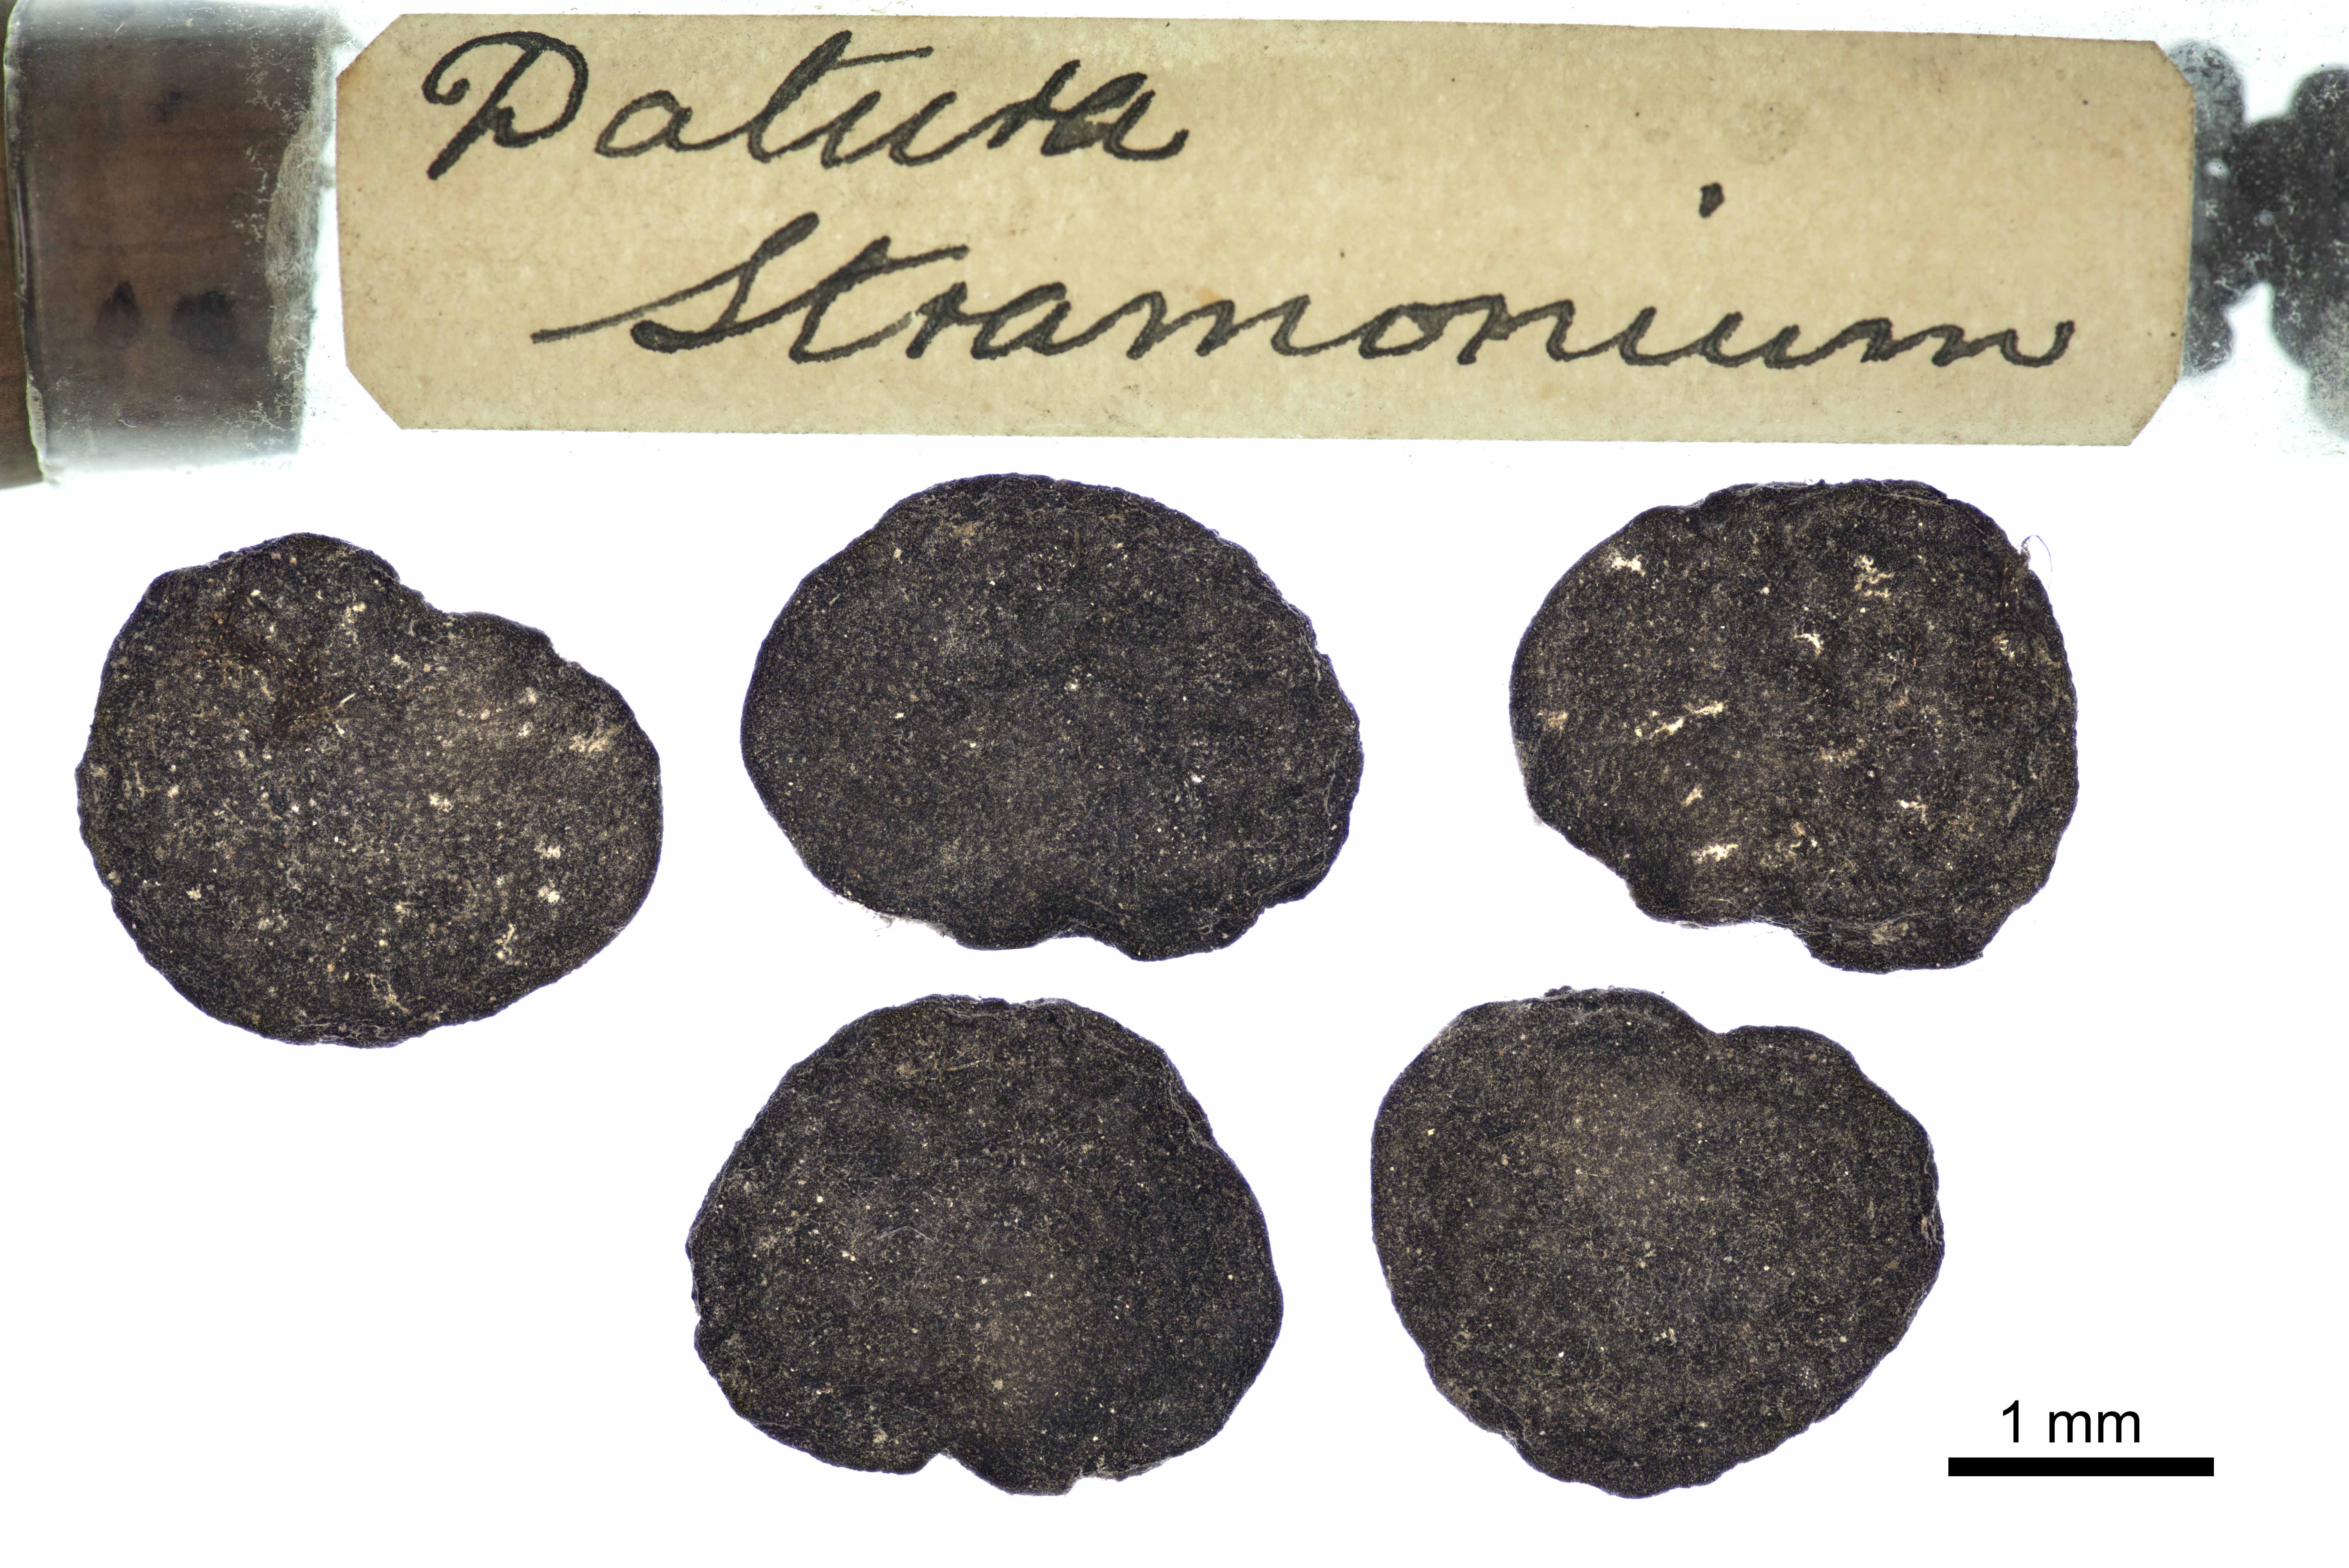 Datura
Stramonium
1 mm